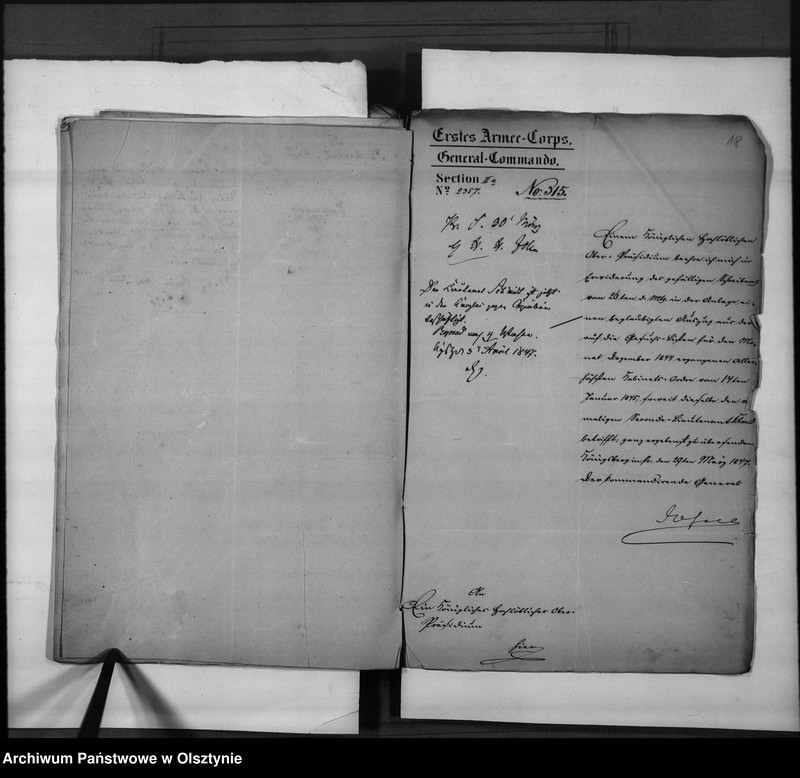 18
Erstes Armee-Corps,
General-Commando.
Section IIa
No 2357.
No: 315.
Pr. d. 30t März
Der Lieutenant ist jetzt
in der Kanzlei gegen Copialien
beschäftigt.
Reprod nach 4 Wochen.
Kgsbg d 3t April 1847.
Einem Königlichen Hochlöblichen
Ober-Präsidium beehre ich mich in
Erwiderung des gefälligen Schreibens
vom 23ten d. Mts in der Anlage ei-
nen beglaubigten Auszug aus der
auf die Gesuchs-Listen für den Mo-
nat Dezember 1844 ergangenen Aller-
höchsten Kabinets-Ordre vom 14ten
Januar 1845, soweit dieselbe den
maligen Seconde-Lieutenant
betrifft, ganz ergebenst zu übersenden
Königsberg in Pr. den 29ten März 1847.
Der kommandirende General
An
Ein Königliches Hochlöbliches Ober-
Präsidium
hier
Archiwum Państwowe w Olsztynie